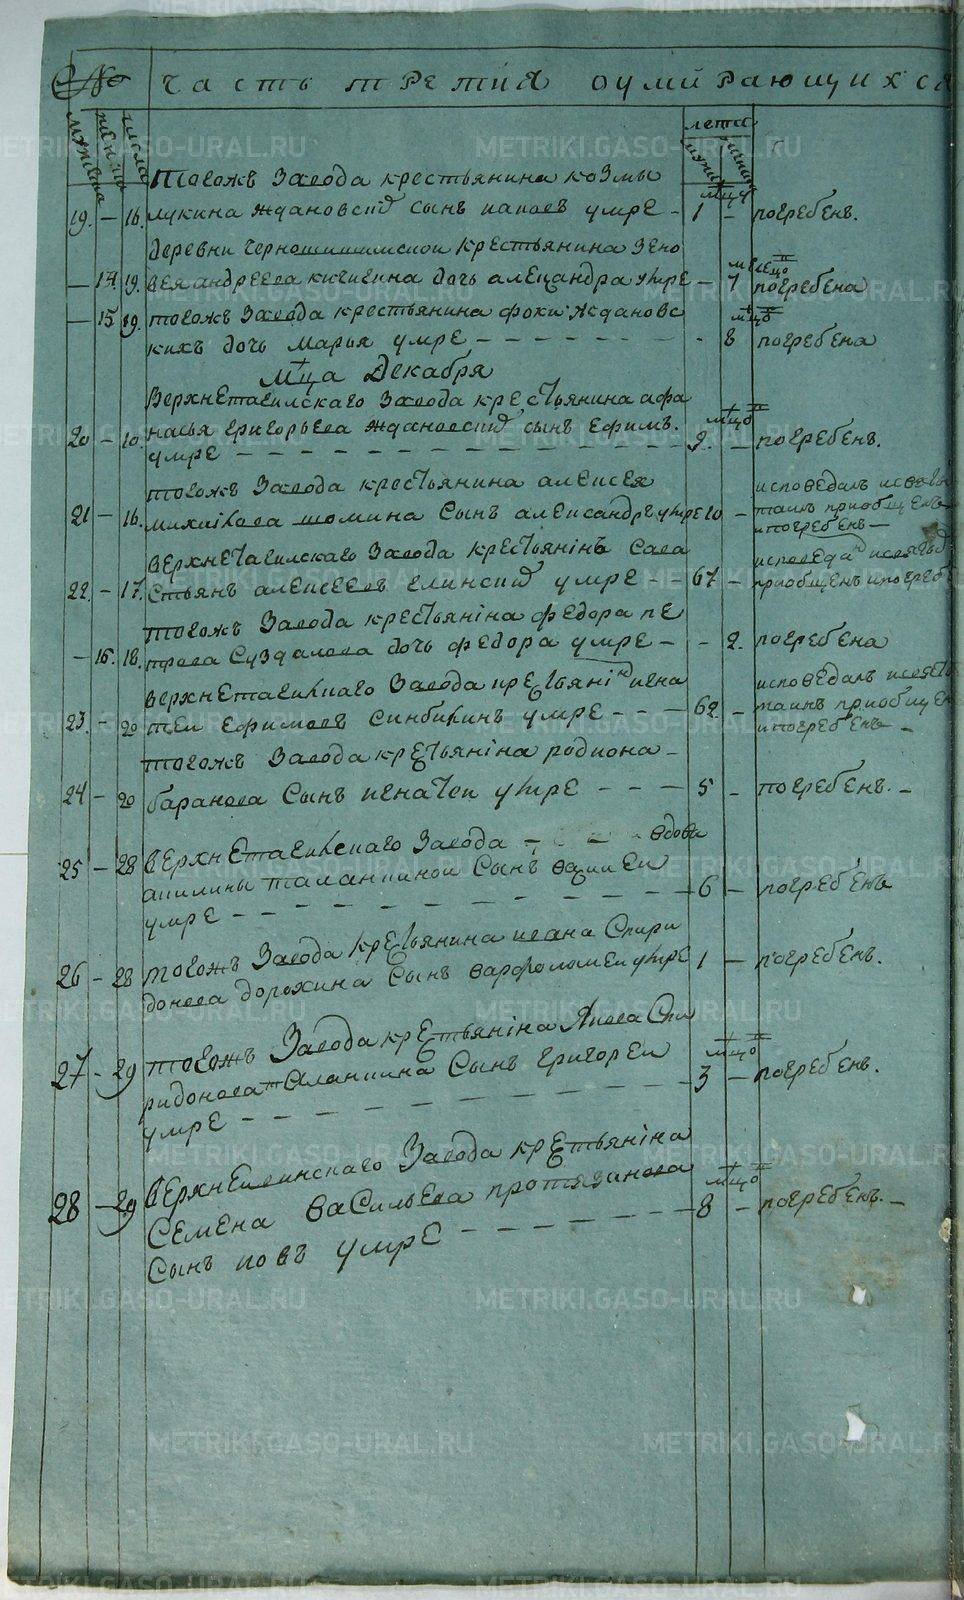 № часть третия оумирающихся
мужска женска числа лета мужска женска
тогожъ Завода крестьянина козмы
мцъ
19. – 16. лукина ждановскихъ сынъ иаковъ умре – 1 – погребенъ.
деревни черношишимской крестьянина зено
месецо
– 14. 19. вея андреева кичигина дочь александра умре – 7 погребена
– 15 19. тогожъ Завода крестьянина фоки ждановс
мцо
кихъ дочь марья умре – – – 8 погребена
Мца Декабря
Верхнетагилскаго Завода крестьянина афа
мцо
20 – 10 насья григорьева ждановскихъ сынъ ефимъ. 9. – погребенъ.
умре – – –
тогожъ Завода крестьянина алексея исповеданъ
21 – 16. михайлова шомина Сынъ александръ умре 10 – таинъ приобщенъ
и погребенъ –
верхнетагилскаго Завода крестьянінъ Сава исповеданъ
22. – 17. стьянъ алексеевъ елинскихъ умре – – 67 – приобщенъ и погребе
тогожъ Завода крестьяніна федора пе
– 16. 18. трова Суздалова дочь федора умре – – 2. погребена
верхнетагилскаго Завода крестьянінъ игна исповеданъ
23. – 20 теи ефимовъ синбикинъ умре – – – 62. – таинъ приобщен
и погребенъ –
тогожъ Завода крестьяніна родиона –
24 – 20 баранова Сынъ игнатеи умре – – – 5 – погребенъ. –
25 – 28 верхнетагилскаго Завода – вдовы
акилины таланкиной Сынъ василеи
умре – – – 6 – погребенъ
26 – 28 тогожъ Завода крестьянина ивана Спири
донова дорохина Сынъ варфоломеи умре 1 – погребенъ.
27 – 29 тогожъ Завода крестьяніна Якова Спи
мцо
ридонова таланкина Сынъ григореи
умре – – – 3 – погребенъ.
28 – 29 верхнетагилскаго Завода крестьяніна
мцо
Семена васильева протазанова 8 – погребенъ. –
Сынъ иовъ умре – – –
METRIKI.GASO-URAL.RU